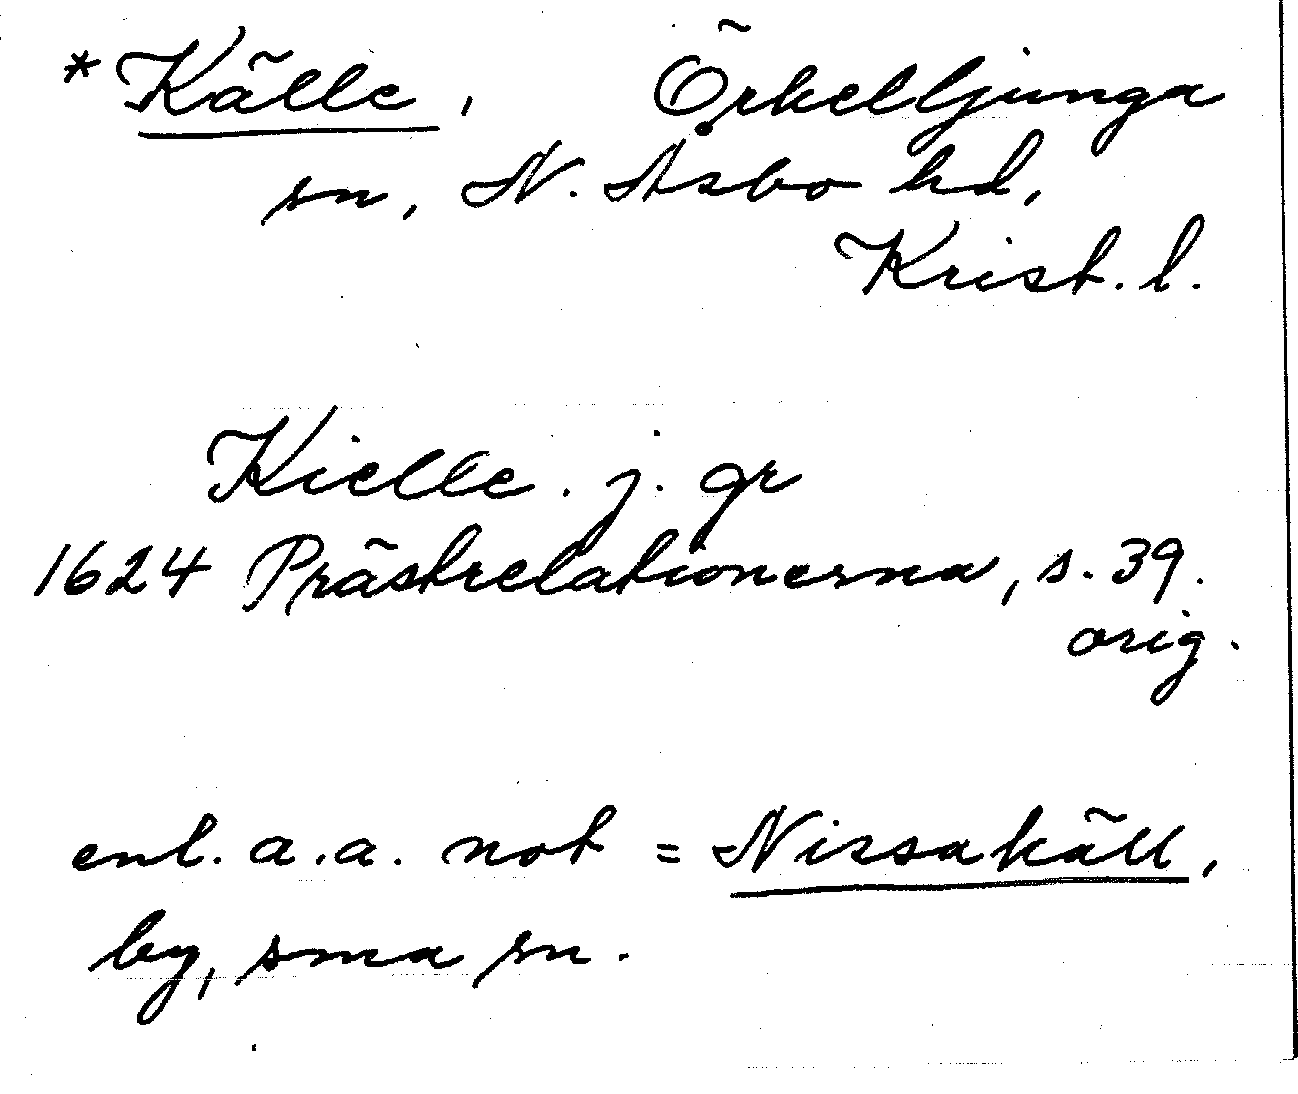 *Källe, Örkelljunga
sn, N. Åsbo hd,
Krist. l.
Kielle. j. gr
1624 Prästrelationerna, s. 39.
orig.
enl. a.a. not = Nissakäll,
by, sma sn.